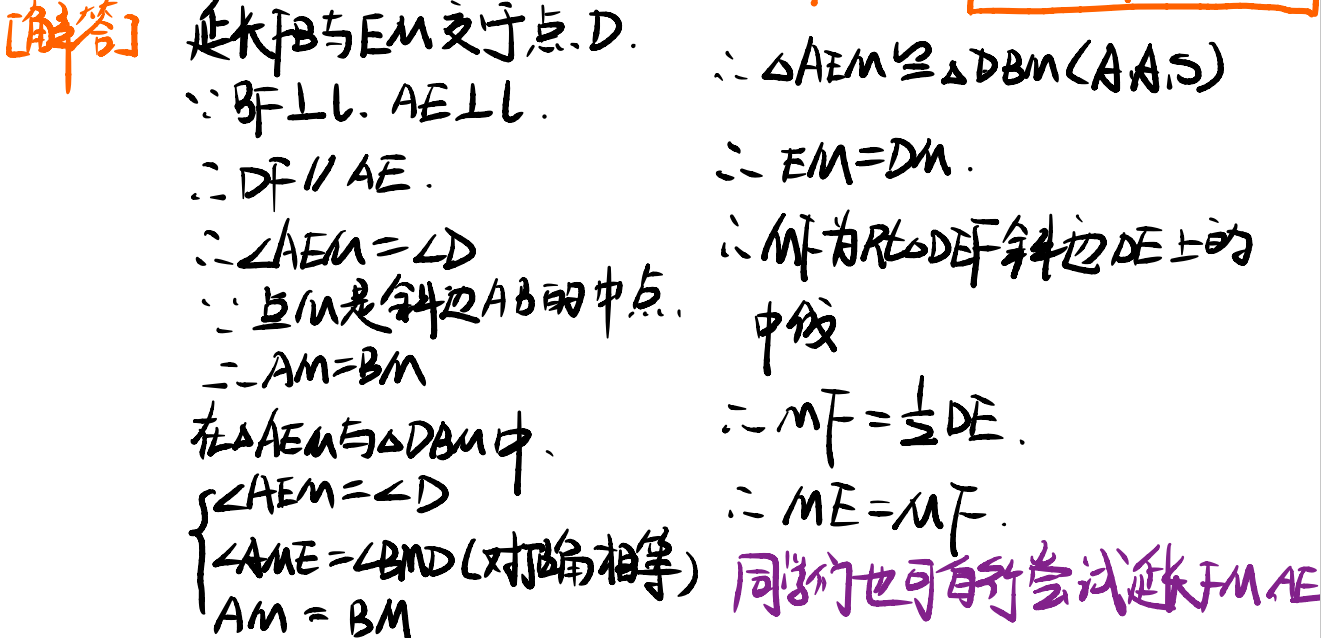 [解答] 延长FB与EM交于点D.
∵BF⊥l. AE⊥l.
∴DF∥AE.
∴∠AEM=∠D
∵点M是斜边AB的中点.
∴AM=BM
在△AEM与△DBM中、
{∠AEM=∠D
∠AME=∠BMD(对顶角相等)
AM=BM
∴△AEM≌△DBM(A.A.S)
∴EM=DM.
∴MF为Rt△DEF斜边DE上的
中线
∴MF=½DE.
∴ME=MF.
同学们也可自行尝试延长FM.AE